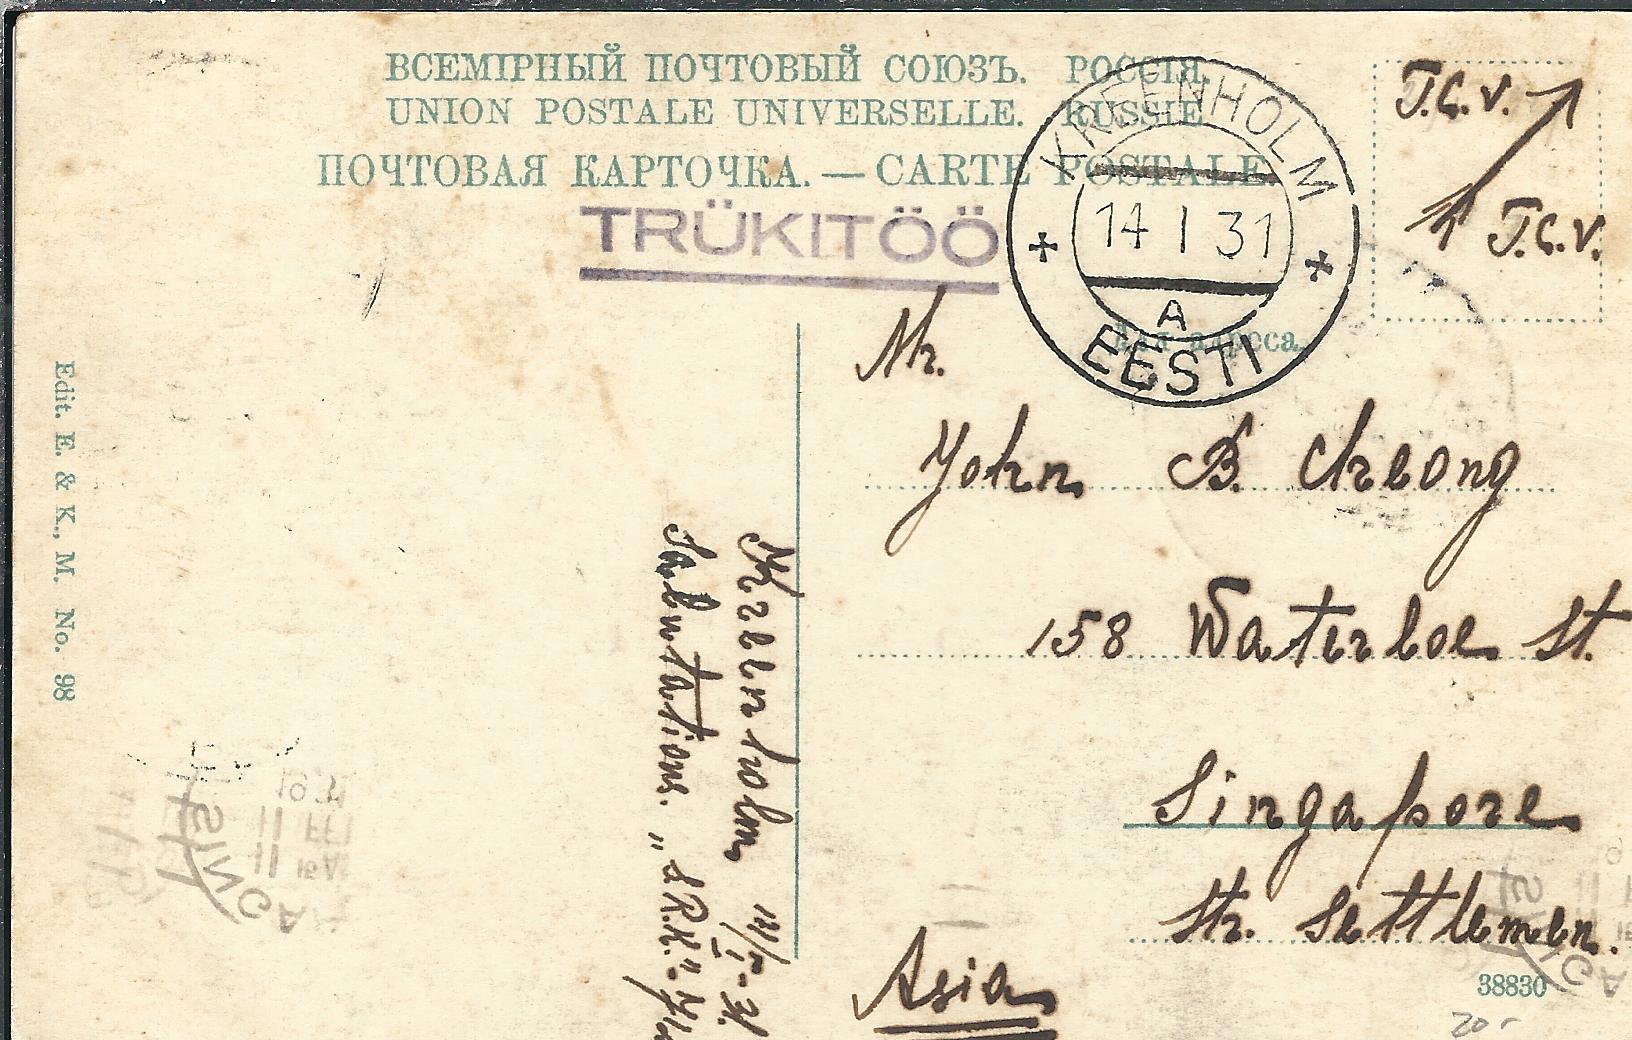 ВСЕМІРНЫЙ ПОЧТОВЫЙ СОЮЗЪ. РОССІЯ.
UNION POSTALE UNIVERSELLE. RUSSIE
ПОЧТОВАЯ КАРТОЧКА. — CARTE POSTALE.
TRÜKITÖÖ
KREENHOLM
14 I 31
A
EESTI
T.C.V.
T.C.V.
Для адреса.
Mr.
John B. Cheong
158 Waterloe St.
Singapore
Str. Settlemen.
Asia
Kreenholm, 14/I-31.
Salutations. „S.R.K."
Edit. E. & K., M. No. 98
SINGA
38830
20-